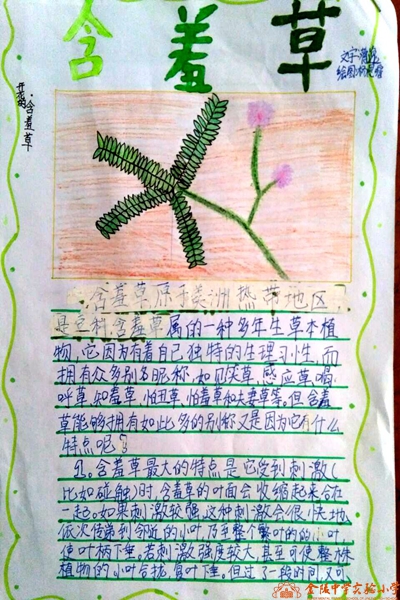 含羞草
文字
绘图
开花的含羞草
含羞草原于美洲热带地区,
是豆科含羞草属的一种多年生草本植
物,它因为有着自己独特的生理习性,而
拥有众多别名昵称,如见笑草,感应草,喝
呼草,知羞草,怕丑草,怕羞草和夫妻草等,但含羞
草能够拥有如此多的别称又是因为它有什么
特点呢?
1、含羞草最大的特点是它受到刺激(
比如碰触)时,含羞草的叶面会收缩起来合在
一起。如果刺激较轻,这种刺激会很快地
依次传递到邻近的小叶,乃至整个
使叶柄下垂。若刺激强度较大,甚至可使整株
植物的小叶合拢,复叶下垂。但过了一段时间,又可
金陵中学实验小学